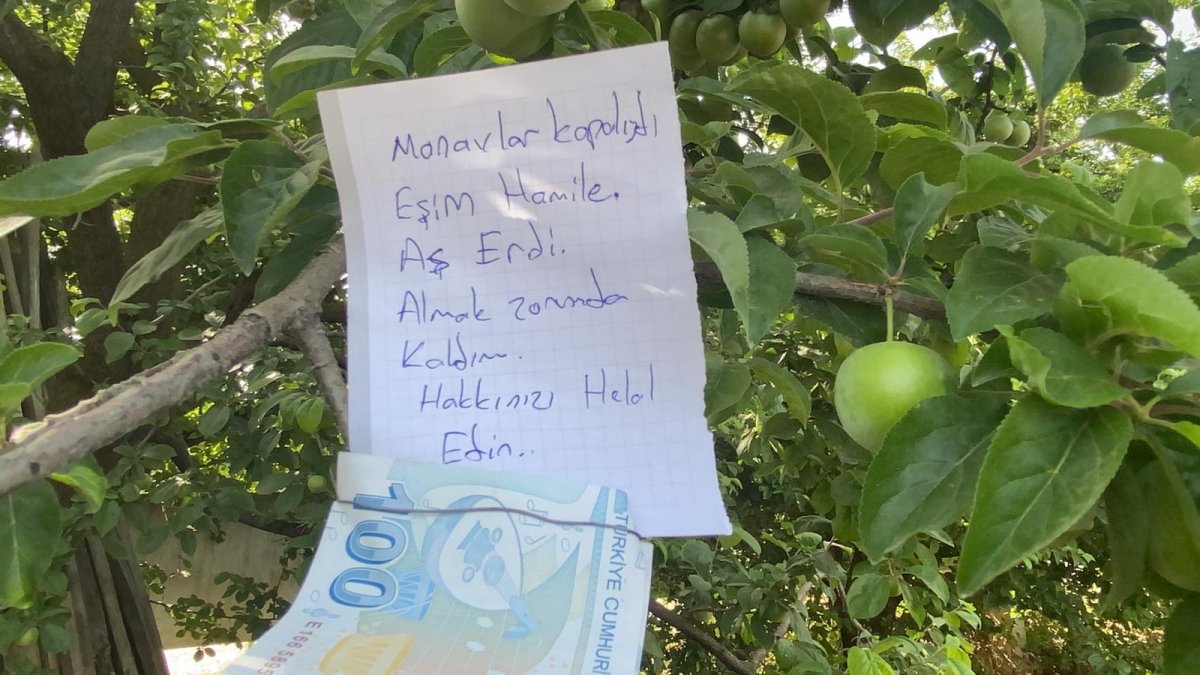 Manavlar kapalıydı
Eşim Hamile.
Aş Erdi.
Almak zorunda
Kaldım.
Hakkınızı Helal
Edin..
100
TÜRKİYE CUMHURİ